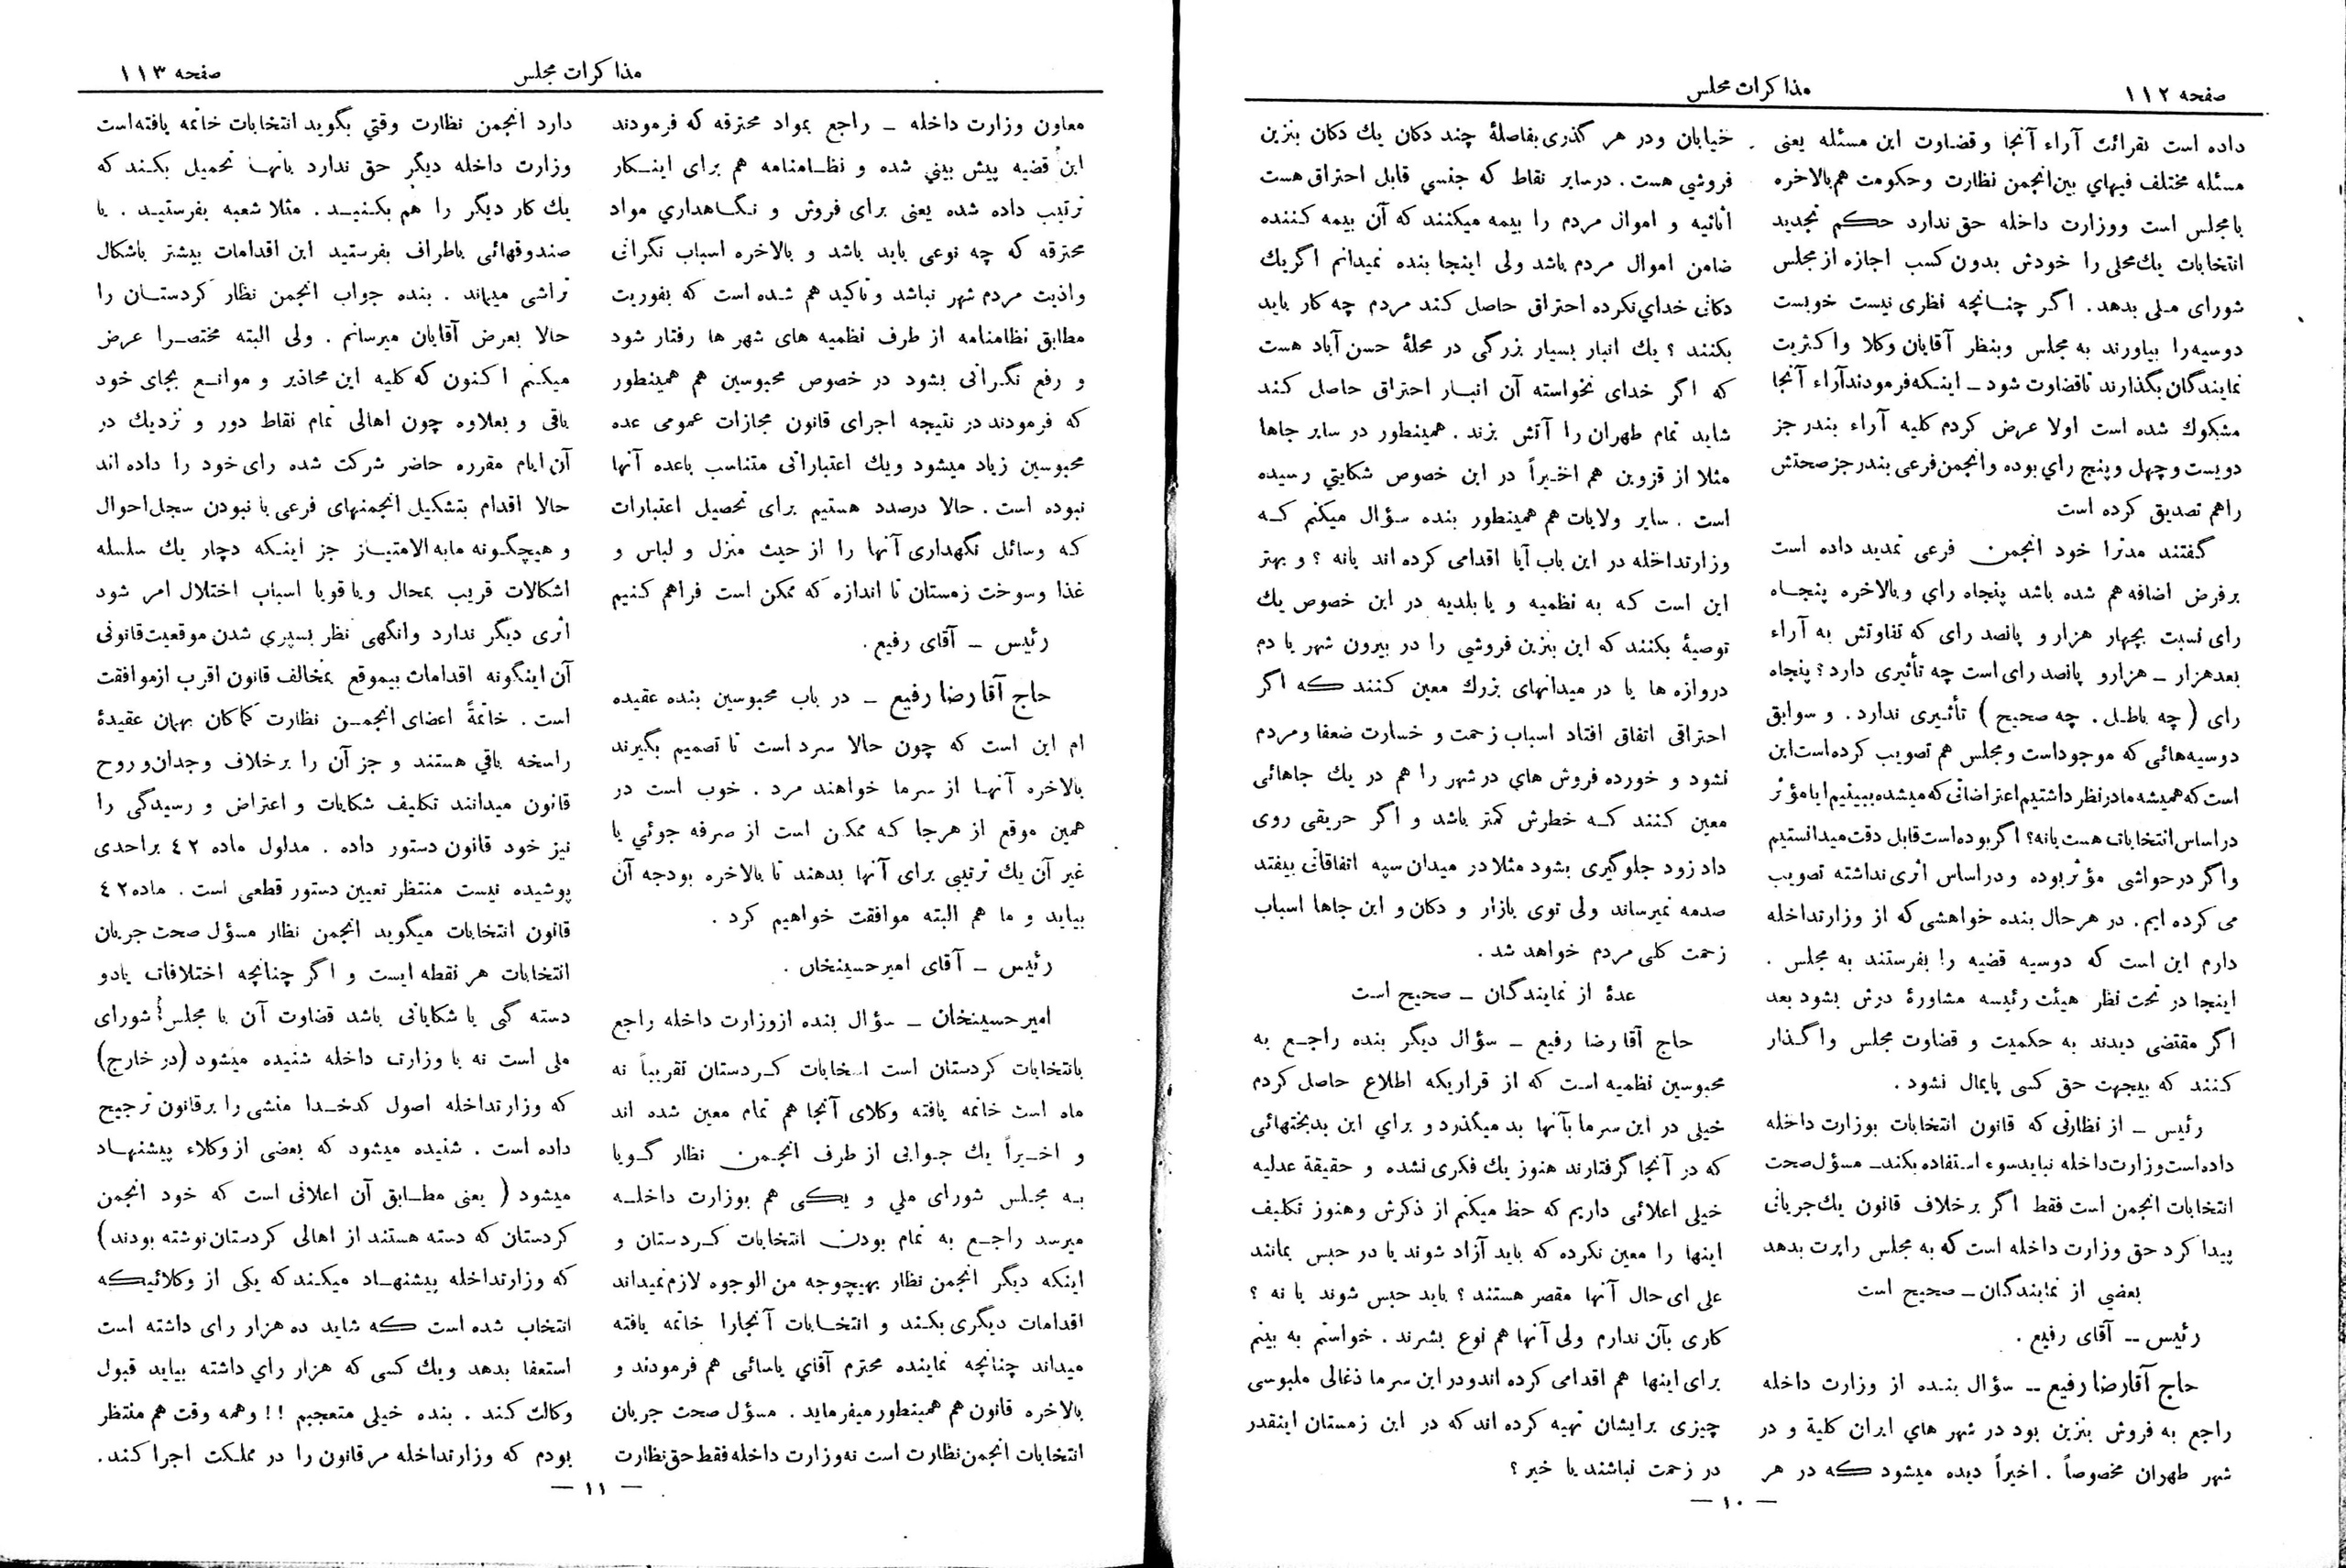 صفحه ۱۱۲
مذاکرات مجلس
داده است بقرائت آراء آنجا و قضاوت این مسئله یعنی
مسئله مختلف فیهای بین انجمن نظارت و حکومت هم بالاخره
با مجلس است و وزارت داخله حق ندارد حکم تجدید
انتخابات یك محلی را خودش بدون کسب اجازه از مجلس
شورای ملی بدهد. اگر چنانچه نظری نیست خوبست
دوسیه را بیاورند به مجلس و بنظر آقایان وکلا و اکثریت
نمایندگان بگذارند تا قضاوت شود ــ اینکه فرمودند آراء آنجا
مشکوك شده است اولا عرض کردم کلیه آراء بندر جز
دویست و چهل و پنج رأی بوده و انجمن فرعی بندر جز صحتش
را هم تصدیق کرده است
گفتند مدترا خود انجمن فرعی تمدید داده است
بر فرض اضافه هم شده باشد پنجاه رأی و بالاخره پنجاه
رای نسبت بچهار هزار و پانصد رای که تفاوتش به آراء
بعد هزار ــ هزار و پانصد رای است چه تأثیری دارد؟ پنجاه
رای (چه باطل. چه صحیح) تأثیری ندارد. و سوابق
دوسیه‌هائی که موجود است و مجلس هم تصویب کرده است این
است که همیشه ما در نظر داشتیم اعتراضاتی که میشده ببینیم ایا مؤثر
در اساس انتخابات هست یا نه؟ اگر بوده است قابل دقت میدانستیم
و اگر در حواشی مؤثر بوده و در اساس اثری نداشته تصویب
می کرده ایم. در هر حال بنده خواهشی که از وزارتداخله
دارم این است که دوسیه قضیه را بفرستند به مجلس .
اینجا در تحت نظر هیئت رئیسه مشاورهٔ درش بشود بعد
اگر مقتضی دیدند به حکمیت و قضاوت مجلس واگذار
کنند که بیجهت حق کسی پایمال نشود .
رئیس ــ از نظارتی که قانون انتخابات بوزارت داخله
داده است وزارت داخله نباید سوء استفاده بکند ــ مسؤل صحت
انتخابات انجمن است فقط اگر برخلاف قانون یك جریانی
پیدا کرد حق وزارت داخله است که به مجلس راپرت بدهد
بعضی از نمایندگان ــ صحیح است
رئیس ــ آقای رفیع .
حاج آقا رضا رفیع ــ سؤال بنده از وزارت داخله
راجع به فروش بنزین بود در شهر های ایران کلیة و در
شهر طهران مخصوصاً . اخیراً دیده میشود که در هر
خیابان و در هر گذری بفاصلهٔ چند دکان یك دکان بنزین
فروشی هست. در سایر نقاط که جنسی قابل احتراق هست
اثاثیه و اموال مردم را بیمه میکنند که آن بیمه کننده
ضامن اموال مردم باشد ولی اینجا بنده نمیدانم اگر یك
دکانی خدای نکرده احتراق حاصل کند مردم چه کار باید
بکنند ؟ یك انبار بسیار بزرگی در محلهٔ حسن آباد هست
که اگر خدای نخواسته آن انبار احتراق حاصل کند
شاید تمام طهران را آتش بزند . همینطور در سایر جاها
مثلا از قزوین هم اخیراً در این خصوص شکایتی رسیده
است . سایر ولایات هم همینطور بنده سؤال میکنم که
وزارتداخله در این باب آیا اقدامی کرده اند یا نه ؟ و بهتر
این است که به نظمیه و یا بلدیه در این خصوص یك
توصیهٔ بکنند که این بنزین فروشی را در بیرون شهر یا دم
دروازه ها یا در میدانهای بزرك معین کنند که اگر
احتراقی اتفاق افتاد اسباب زحمت و خسارت ضعفا و مردم
نشود و خورده فروش های در شهر را هم در یك جاهائی
معین کنند که خطرش کمتر باشد و اگر حریقی روی
داد زود جلوگیری بشود مثلا در میدان سپه اتفاقاتی بیفتد
صدمه نمیرساند ولی توی بازار و دکان و این جاها اسباب
زحمت کلی مردم خواهد شد .
عدهٔ از نمایندگان ــ صحیح است
حاج آقا رضا رفیع ــ سؤال دیگر بنده راجع به
محبوسین نظمیه است که از قراریکه اطلاع حاصل کردم
خیلی در این سرما بآنها بد میگذرد و برای این بدبختهائی
که در آنجا گرفتارند هنوز یك فکری نشده و حقیقة عدلیه
خیلی اعلائی داریم که حظ میکنم از ذکرش و هنوز تکلیف
اینها را معین نکرده که باید آزاد شوند یا در حبس بمانند
علی ای حال آنها مقصر هستند ؟ باید حبس شوند یا نه ؟
کاری بآن ندارم ولی آنها هم نوع بشرند . خواستم به بینم
برای اینها هم اقدامی کرده اند و در این سرما ذغالی ملبوسی
چیزی برایشان تهیه کرده اند که در این زمستان اینقدر
در زحمت نباشند یا خیر ؟
— ۱۰ —
مذاکرات مجلس
صفحه ۱۱۳
معاون وزارت داخله ــ راجع بمواد محترقه که فرمودند
این قضیه پیش بینی شده و نظامنامه هم برای اینکار
ترتیب داده شده یعنی برای فروش و نگاهداری مواد
محترقه که چه نوعی باید باشد و بالاخره اسباب نگرانی
و اذیت مردم شهر نباشد و تاکید هم شده است که بفوریت
مطابق نظامنامه از طرف نظمیه های شهر ها رفتار شود
و رفع نگرانی بشود در خصوص محبوسین هم همینطور
که فرمودند در نتیجه اجرای قانون مجازات عمومی عده
محبوسین زیاد میشود و یك اعتباراتی متناسب با عده آنها
نبوده است . حالا درصدد هستیم برای تحصیل اعتبارات
که وسائل نگهداری آنها را از حیث منزل و لباس و
غذا و سوخت زمستان تا اندازه که ممکن است فراهم کنیم
رئیس ــ آقای رفیع .
حاج آقا رضا رفیع ــ در باب محبوسین بنده عقیده
ام این است که چون حالا سرد است تا تصمیم بگیرند
بالاخره آنها از سرما خواهند مرد . خوب است در
همین موقع از هرجا که ممکن است از صرفه جوئی یا
غیر آن یك ترتیبی برای آنها بدهند تا بالاخره بودجه آن
بیاید و ما هم البته موافقت خواهیم کرد .
رئیس ــ آقای امیر حسینخان .
امیر حسینخان ــ سؤال بنده از وزارت داخله راجع
بانتخابات کردستان است انتخابات کردستان تقریباً نه
ماه است خاتمه یافته وکلای آنجا هم تمام معین شده اند
و اخیراً یك جوابی از طرف انجمن نظار گویا
به مجلس شورای ملی و یکی هم بوزارت داخله
میرسد راجع به تمام بودن انتخابات کردستان و
اینکه دیگر انجمن نظار بهیچوجه من الوجوه لازم نمیداند
اقدامات دیگری بکند و انتخابات آنجارا خاتمه یافته
میداند چنانچه نماینده محترم آقای یاسائی هم فرمودند و
بالاخره قانون هم همینطور میفرماید . مسؤل صحت جریان
انتخابات انجمن نظارت است نه وزارت داخله فقط حق نظارت
دارد انجمن نظارت وقتی بگوید انتخابات خاتمه یافته است
وزارت داخله دیگر حق ندارد بآنها تحمیل بکند که
یك کار دیگر را هم بکنید . مثلا شعبه بفرستید . یا
صندوقهائی باطراف بفرستید این اقدامات بیشتر باشکال
تراشی میماند . بنده جواب انجمن نظار کردستان را
حالا بعرض آقایان میرسانم . ولی البته مختصرا عرض
میکنم اکنون که کلیه این محاذیر و موانع بجای خود
باقی و بعلاوه چون اهالی تمام نقاط دور و نزدیك در
آن ایام مقرره حاضر شرکت شده رای خود را داده اند
حالا اقدام بتشکیل انجمنهای فرعی با نبودن سجل احوال
و هیچگونه مابه الامتیاز جز اینکه دچار یك سلسله
اشکالات قریب بمحال و یا قویا اسباب اختلال امر شود
اثری دیگر ندارد وانگهی نظر بسپری شدن موقعیت قانونی
آن اینگونه اقدامات بیموقع بمخالف قانون اقرب از موافقت
است . خاتمةً اعضای انجمن نظارت کماکان بهمان عقیدهٔ
راسخه باقی هستند و جز آن را برخلاف وجدان و روح
قانون میدانند تکلیف شکایات و اعتراض و رسیدگی را
نیز خود قانون دستور داده . مدلول ماده ٤٢ بر احدی
پوشیده نیست منتظر تعیین دستور قطعی است . ماده ٤٢
قانون انتخابات میگوید انجمن نظار مسؤل صحت جریان
انتخابات هر نقطه ایست و اگر چنانچه اختلافات یا دو
دسته گی یا شکایاتی باشد قضاوت آن با مجلس شورای
ملی است نه با وزارت داخله شنیده میشود (در خارج)
که وزارتداخله اصول کدخدا منشی را بر قانون ترجیح
داده است . شنیده میشود که بعضی از وکلاء پیشنهاد
میشود ( یعنی مطابق آن اعلانی است که خود انجمن
کردستان که دسته هستند از اهالی کردستان نوشته بودند)
که وزارتداخله پیشنهاد میکند که یکی از وکلائیکه
انتخاب شده است که شاید ده هزار رای داشته است
استعفا بدهد و یك کسی که هزار رأی داشته بیاید قبول
وکالت کند . بنده خیلی متعجبم !! و همه وقت هم منتظر
بودم که وزارتداخله مر قانون را در مملکت اجرا کند .
— ۱۱ —